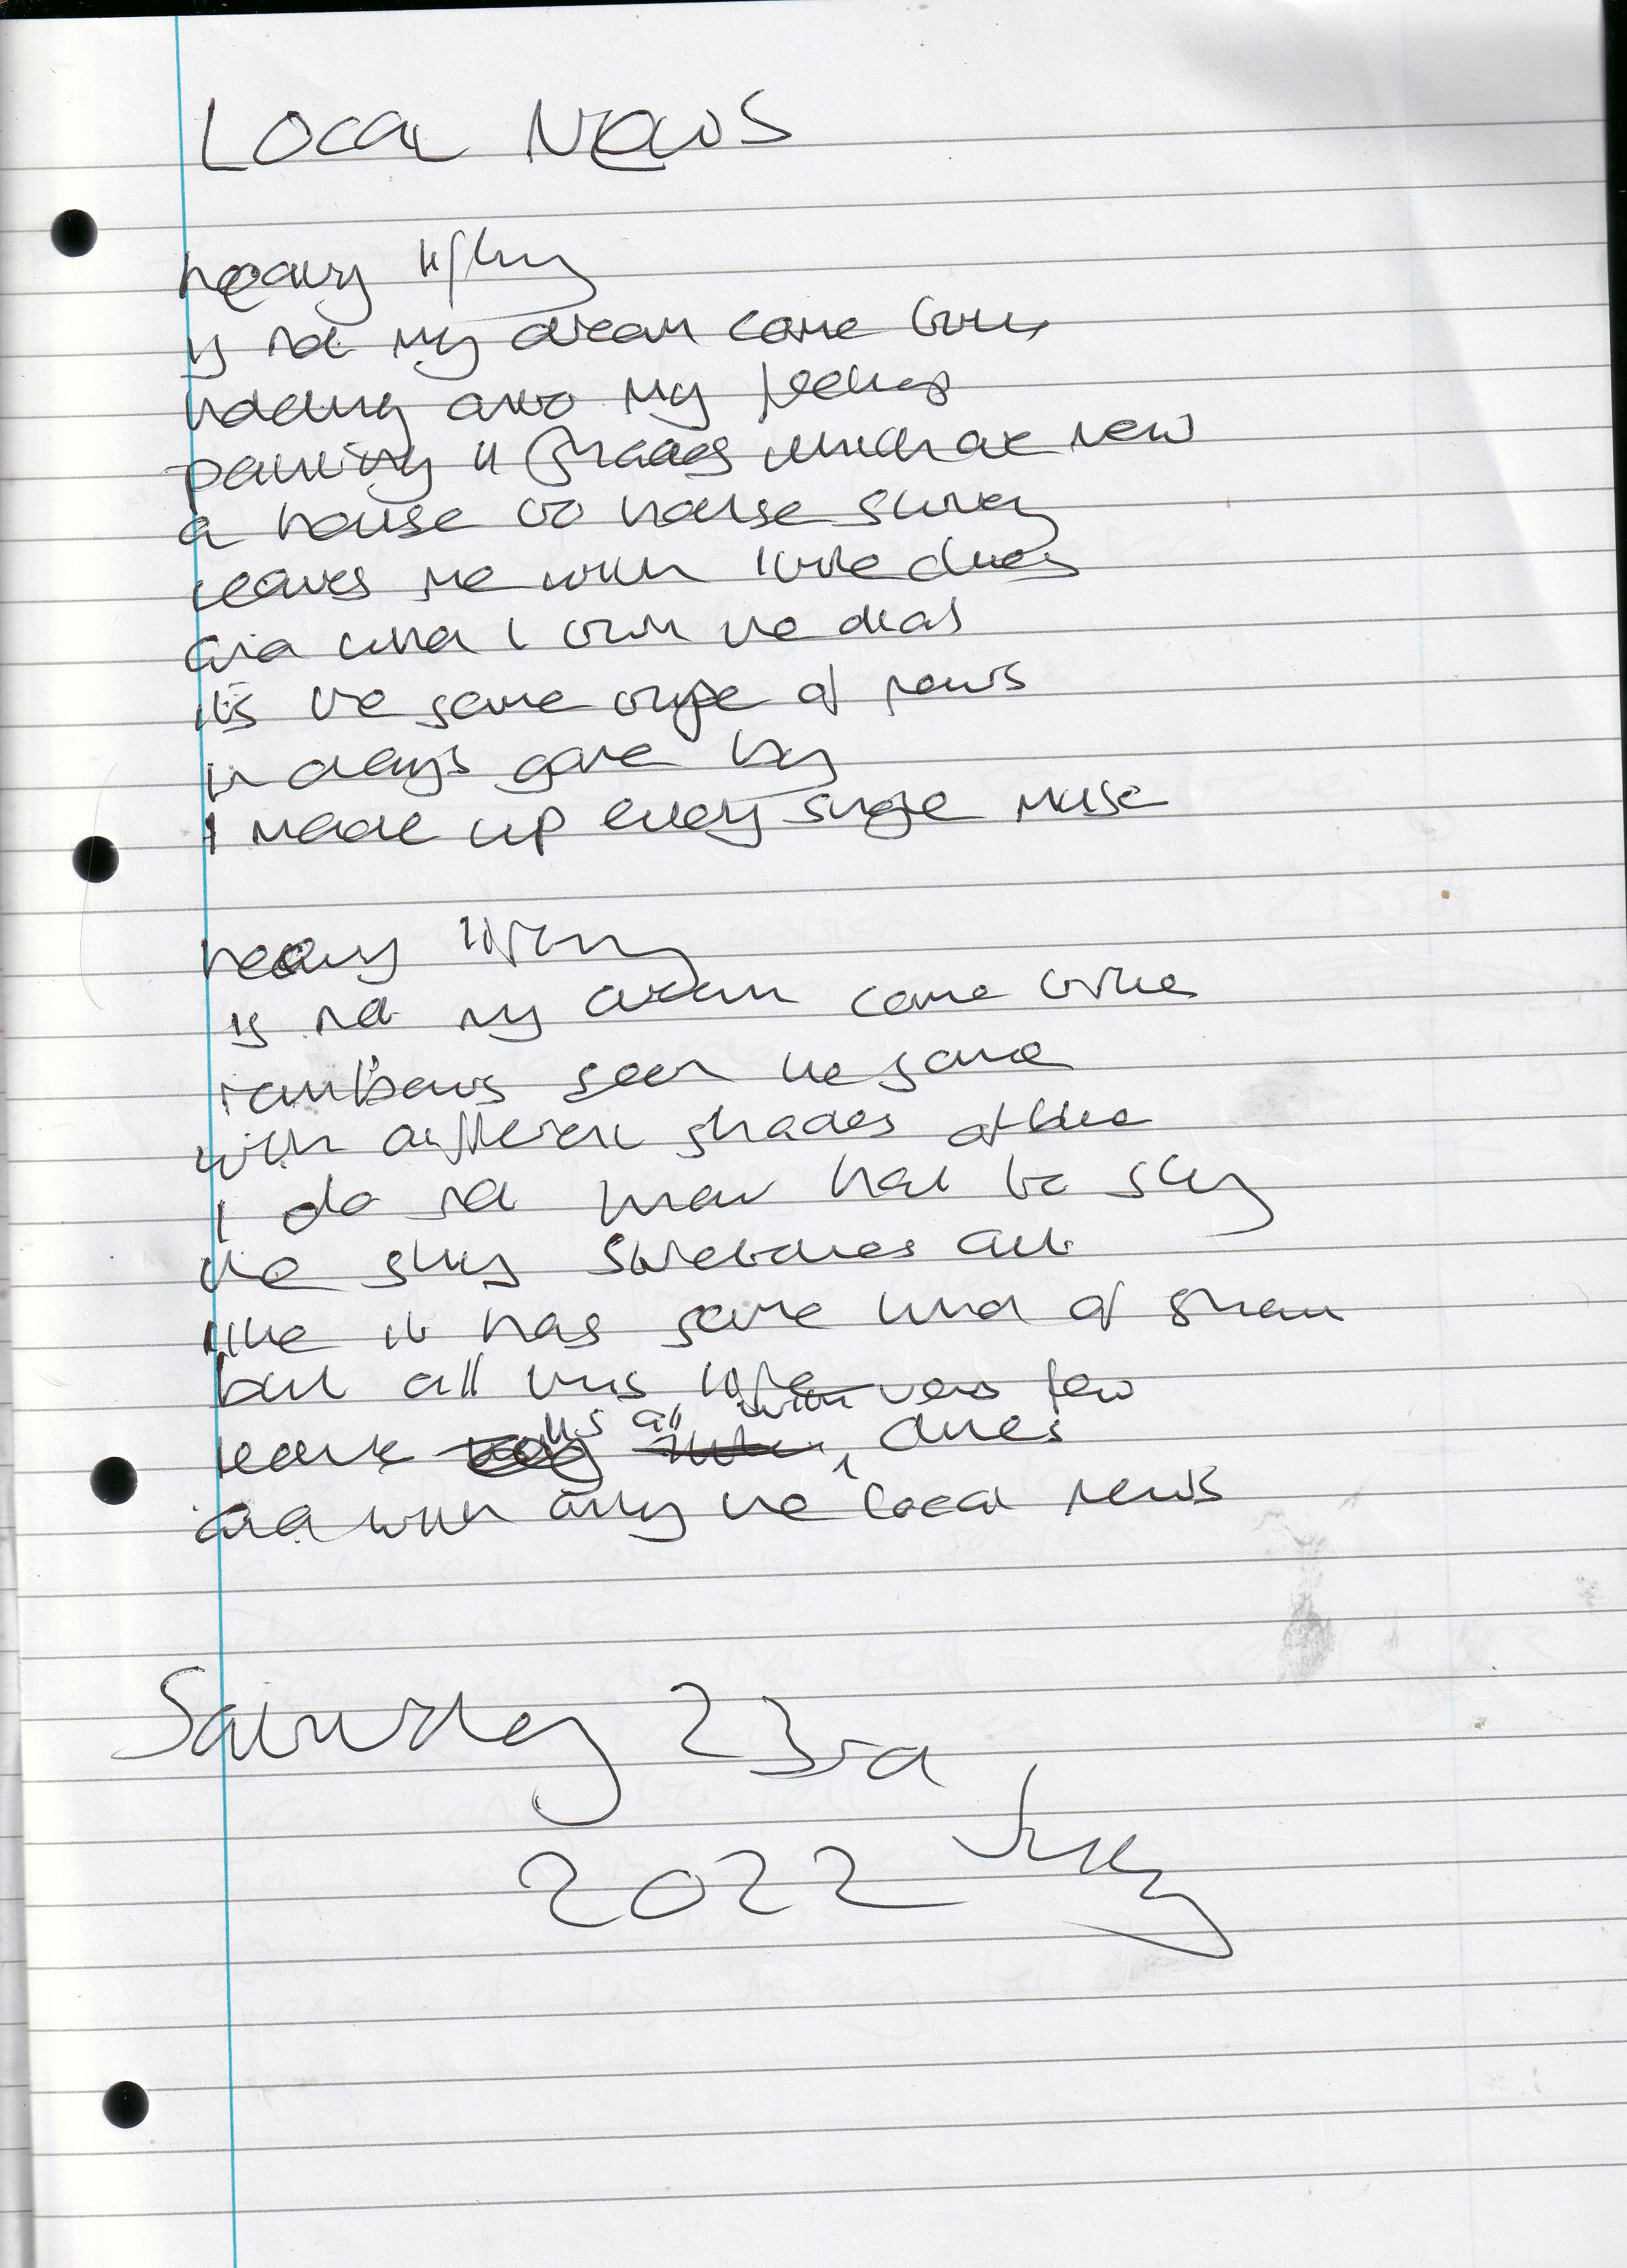 Local News
heavy lifting
is not my dream come true
holding onto my feelings
painting in shades which are new
a house to house survey
leaves me with little clues
and when I turn the dial
it's the same type of news
in days gone by
I made up every single muse
heavy lifting
is not my dream come true
rainbows seen the same
with different shades of blue
I do not know how to
the sky stretches out
like it has some kind of
but all this life
leave us all with very few clues
and with only the local news
Saturday 23rd
July
2022